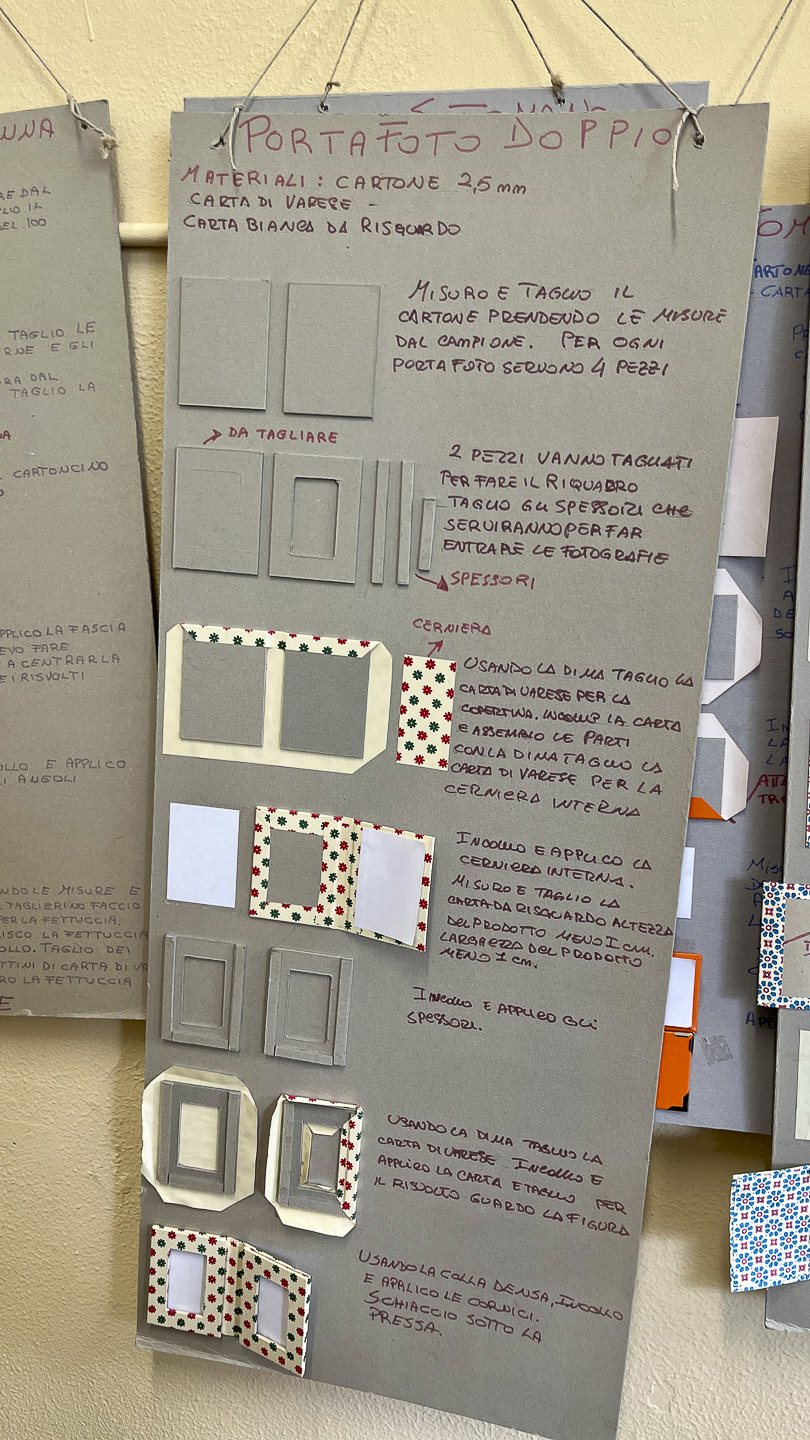 PORTAFOTO DOPPIO
MATERIALI: CARTONE 2,5 mm
CARTA DI VARESE -
CARTA BIANCA DA RISGUARDO
MISURO E TAGLIO IL
CARTONE PRENDENDO LE MISURE
DAL CAMPIONE. PER OGNI
PORTAFOTO SERVONO 4 PEZZI
DA TAGLIARE
2 PEZZI VANNO TAGLIATI
PER FARE IL RIQUADRO
TAGLIO GLI SPESSORI CHE
SERVIRANNO PER FAR
ENTRARE LE FOTOGRAFIE
SPESSORI
CERNIERA
USANDO LA DIMA TAGLIO LA
CARTA DI VARESE PER LA
COPERTINA. INCOLLO LA CARTA
E ASSEMBLO LE PARTI
CON LA DIMA TAGLIO LA
CARTA DI VARESE PER LA
CERNIERA INTERNA
INCOLLO E APPLICO LA
CERNIERA INTERNA.
MISURO E TAGLIO LA
CARTA DA RISGUARDO ALTEZZA
DEL PRODOTTO MENO 1 CM.
LARGHEZZA DEL PRODOTTO
MENO 1 CM.
INCOLLO E APPLICO GLI
SPESSORI.
USANDO LA DIMA TAGLIO LA
CARTA DI VARESE INCOLLO E
APPLICO LA CARTA E TAGLIO PER
IL RISVOLTO GUARDO LA FIGURA
USANDO LA COLLA DENSA, INCOLLO
E APPLICO LE CORNICI.
SCHIACCIO SOTTO LA
PRESSA.
NNA
TAGLIO LE
E GLI
DAL
TAGLIO LA
CARTONCINO
APPLICO LA FASCIA
EVO FARE
A CENTRARLA
E I RISVOLTI
E APPLICO
ANGOLI
LE MISURE E
TAGLIERINO FACCIO
PER LA FETTUCCIA.
LA FETTUCCIA
TAGLIO DEI
DI CARTA DI
LA FETTUCCIA